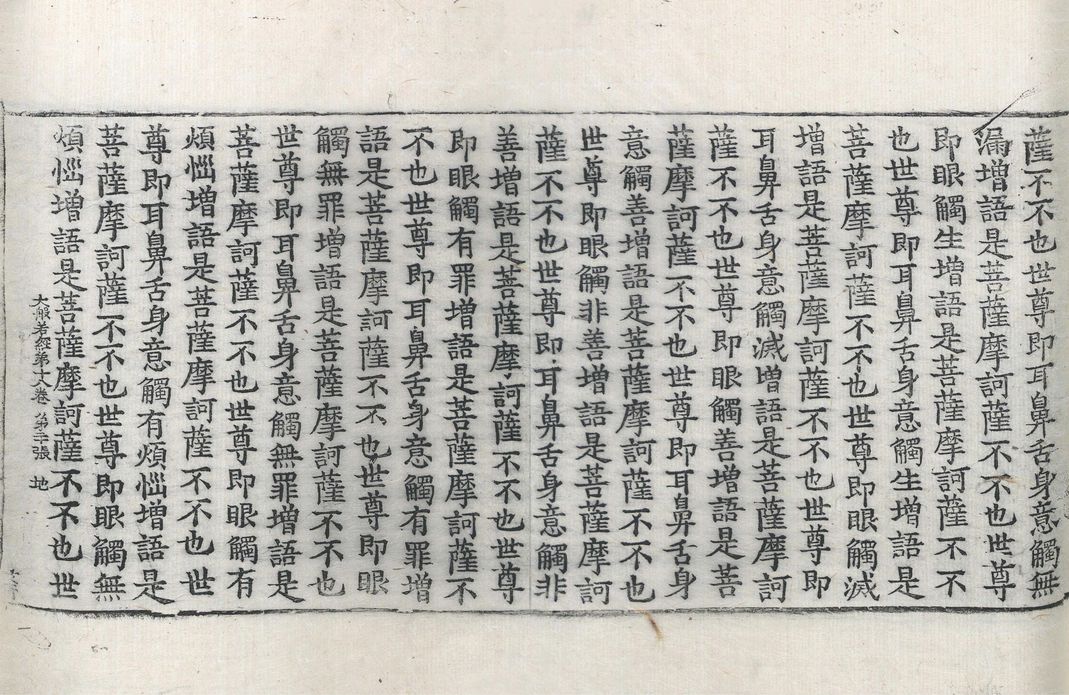 薩不不也世尊即耳鼻舌身意觸無
漏增語是菩薩摩訶薩不不也世尊
即眼觸生增語是菩薩摩訶薩不不
也世尊即耳鼻舌身意觸生增語是
菩薩摩訶薩不不也世尊即眼觸滅
增語是菩薩摩訶薩不不也世尊即
耳鼻舌身意觸滅增語是菩薩摩訶
薩不不也世尊即眼觸善增語是菩
薩摩訶薩不不也世尊即耳鼻舌身
意觸善增語是菩薩摩訶薩不不也
世尊即眼觸非善增語是菩薩摩訶
薩不不也世尊即耳鼻舌身意觸非
善增語是菩薩摩訶薩不不也世尊
即眼觸有罪增語是菩薩摩訶薩不
不也世尊即耳鼻舌身意觸有罪增
語是菩薩摩訶薩不不也世尊即眼
觸無罪增語是菩薩摩訶薩不不也
世尊即耳鼻舌身意觸無罪增語是
菩薩摩訶薩不不也世尊即眼觸有
煩惱增語是菩薩摩訶薩不不也世
尊即耳鼻舌身意觸有煩惱增語是
菩薩摩訶薩不不也世尊即眼觸無
煩惱增語是菩薩摩訶薩不不也世
大般若經第十八卷 第張 地